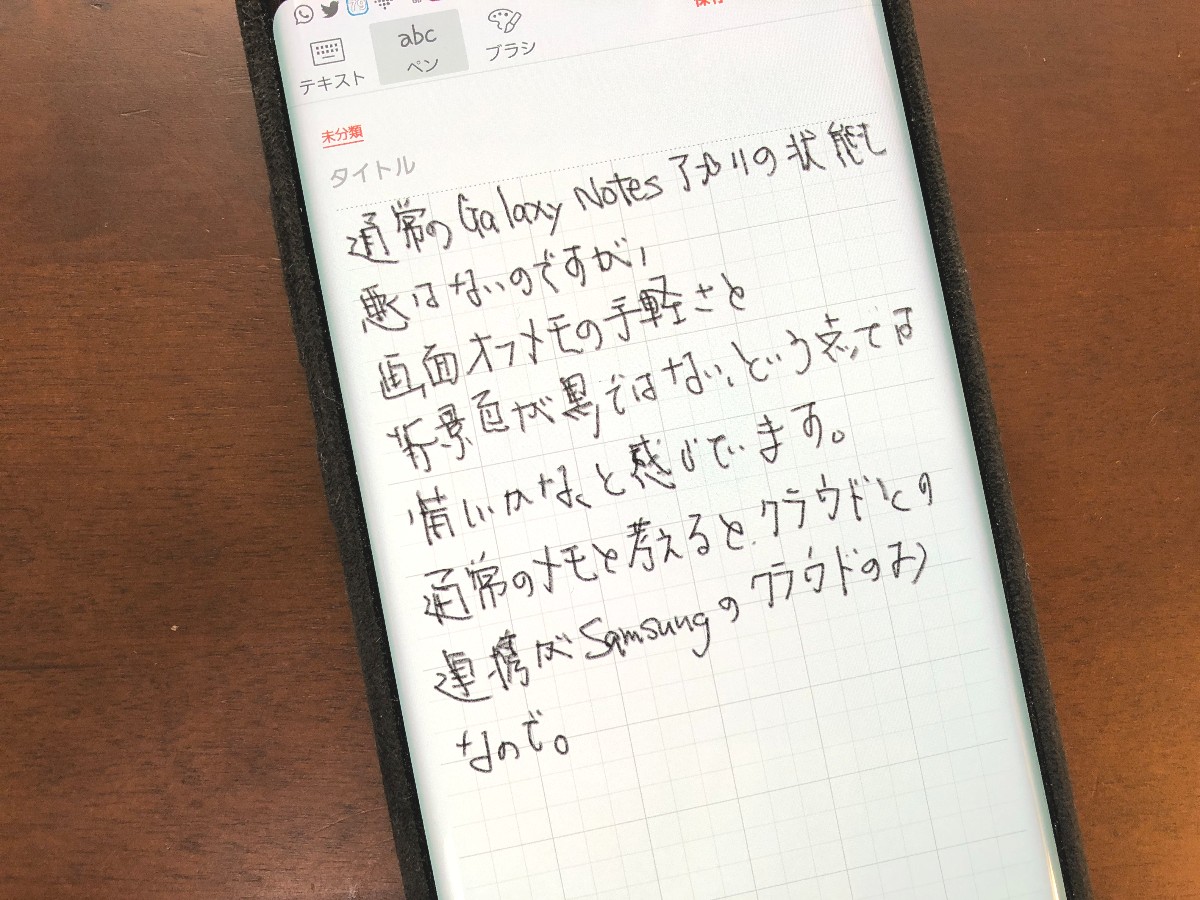 79
保存
テキスト
abc
ペン
ブラシ
未分類
タイトル
通常のGalaxy Notesアプリの状態も
悪くはないのですが、
画面オフメモの手軽さと
背景色が黒ではない、という点では
惜しいかな、と感じています。
通常のメモと考えると、クラウドとの
連携がSamsungのクラウドのみ
なので。